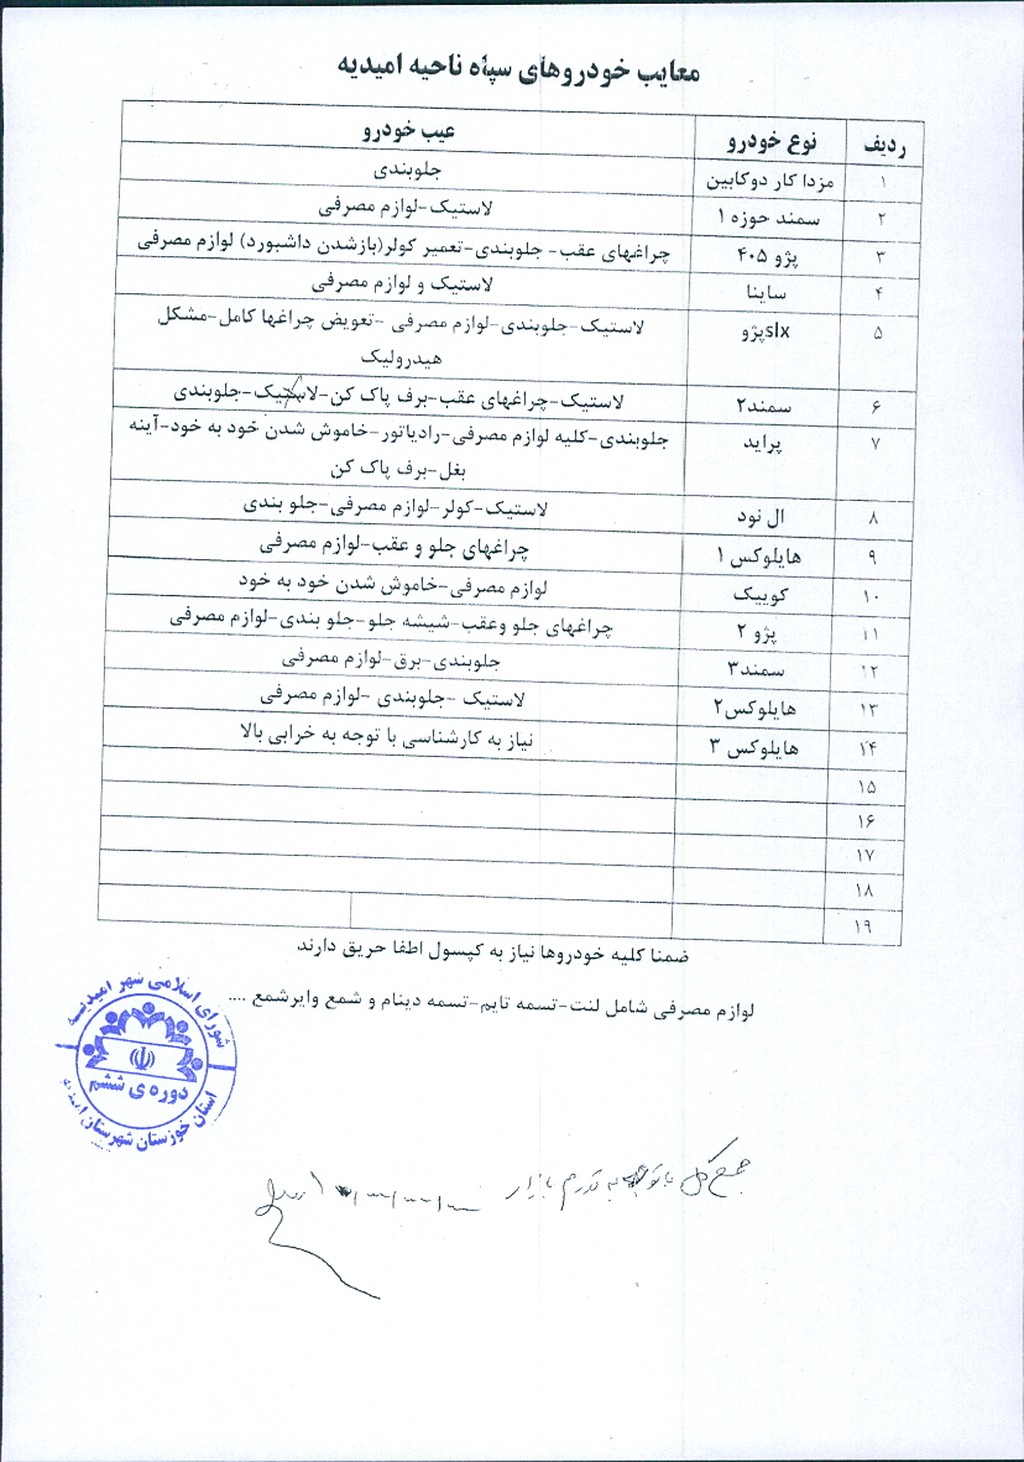 معایب خودروهای سپاه ناحیه امیدیه
ردیف نوع خودرو عیب خودرو
۱ مزدا کار دوکابین جلوبندی
۲ سمند حوزه ۱ لاستیک-لوازم مصرفی
۳ پژو ۴۰۵ چراغهای عقب- جلوبندی-تعمیر کولر(بازشدن داشبورد) لوازم مصرفی
۴ ساینا لاستیک و لوازم مصرفی
۵ پژوslx لاستیک-جلوبندی-لوازم مصرفی -تعویض چراغها کامل-مشکل
هیدرولیک
۶ سمند۲ لاستیک-چراغهای عقب-برف پاک کن-لاستیک-جلوبندی
۷ پراید جلوبندی-کلیه لوازم مصرفی-رادیاتور-خاموش شدن خود به خود-آینه
بغل-برف پاک کن
۸ ال نود لاستیک-کولر-لوازم مصرفی-جلو بندی
۹ هایلوکس ۱ چراغهای جلو و عقب-لوازم مصرفی
۱۰ کوییک لوازم مصرفی-خاموش شدن خود به خود
۱۱ پژو ۲ چراغهای جلو وعقب-شیشه جلو-جلو بندی-لوازم مصرفی
۱۲ سمند۳ جلوبندی-برق-لوازم مصرفی
۱۳ هایلوکس۲ لاستیک -جلوبندی -لوازم مصرفی
۱۴ هایلوکس ۳ نیاز به کارشناسی با توجه به خرابی بالا
۱۵
۱۶
۱۷
۱۸
۱۹
ضمنا کلیه خودروها نیاز به کپسول اطفا حریق دارند
لوازم مصرفی شامل لنت-تسمه تایم-تسمه دینام و شمع وایرشمع ....
شورای اسلامی شهر امیدیه
دوره ی ششم
استان خوزستان شهرستان امیدیه
جمع کل با توجه به تورم بازار